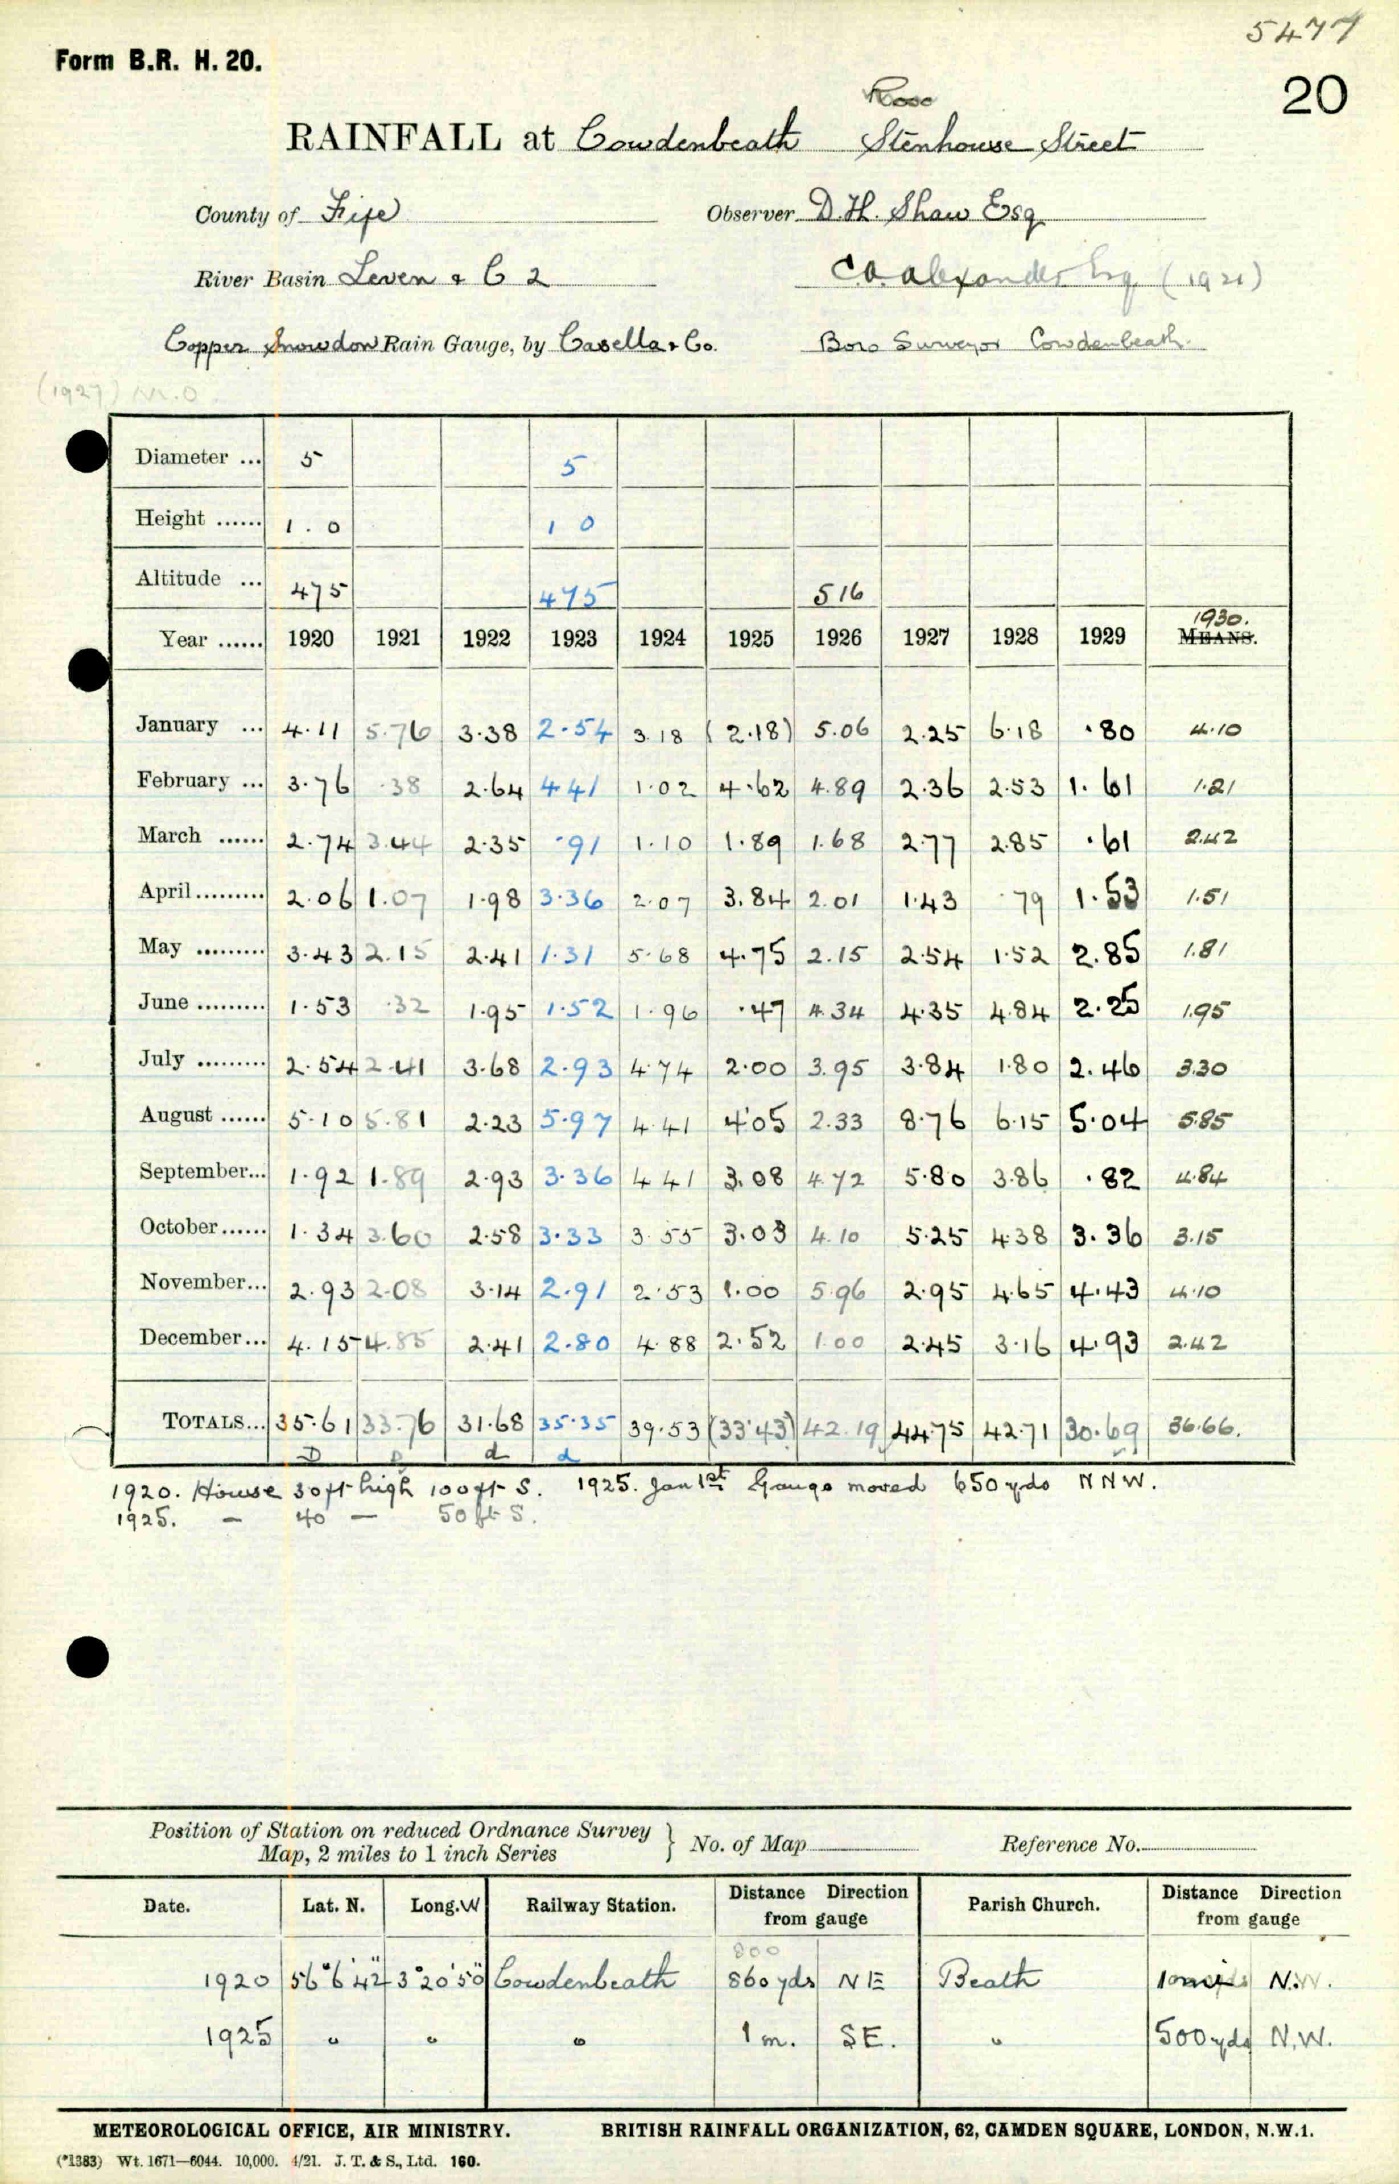 5477
Form B.R. H. 20.
20
RAINFALL at Cowdenbeath Stenhouse Street
County of Fife Observer D. H. Shaw Esq
River Basin Leven & C 2 C.A. Alexander Esq (1921)
Copper Snowdon Rain Gauge, by Casella & Co. Boro Surveyor Cowdenbeath.
(1927) M.O
Diameter ... 5 5
Height ...... 1.0 1 0
Altitude ... 475 475 516
Year ...... 1920 1921 1922 1923 1924 1925 1926 1927 1928 1929 1930. MEANS.
January ... 4.11 5.76 3.38 2.54 3.18 (2.18) 5.06 2.25 6.18 .80 4.10
February ... 3.76 .38 2.64 4.41 1.02 4.62 4.89 2.36 2.53 1.61 1.21
March ...... 2.74 3.44 2.35 .91 1.10 1.89 1.68 2.77 2.85 .61 2.42
April ......... 2.06 1.07 1.98 3.36 2.07 3.84 2.01 1.43 .79 1.53 1.51
May ......... 3.43 2.15 2.41 1.31 5.68 4.75 2.15 2.54 1.52 2.85 1.81
June ......... 1.53 .32 1.95 1.52 1.96 .47 4.34 4.35 4.84 2.25 1.95
July ......... 2.54 2.41 3.68 2.93 4.74 2.00 3.95 3.84 1.80 2.46 3.30
August ...... 5.10 5.81 2.23 5.97 4.41 4.05 2.33 8.76 6.15 5.04 5.85
September... 1.92 1.89 2.93 3.36 4.41 3.08 4.72 5.80 3.86 .82 4.84
October...... 1.34 3.60 2.58 3.33 3.55 3.03 4.10 5.25 4.38 3.36 3.15
November... 2.93 2.08 3.14 2.91 2.53 1.00 5.96 2.95 4.65 4.43 4.10
December... 4.15 4.85 2.41 2.80 4.88 2.52 1.00 2.45 3.16 4.93 2.42
TOTALS... 35.61 33.76 31.68 35.35 39.53 (33.43) 42.19 44.75 42.71 30.69 36.66.
D D d d
1920. House 30ft high 100ft S. 1925. Jan 1st Gauge moved 650 yds NNW.
1925. — 40 — 50 ft S.
Position of Station on reduced Ordnance Survey
Map, 2 miles to 1 inch Series } No. of Map Reference No.
Date. Lat. N. Long. W Railway Station. Distance Direction from gauge Parish Church. Distance Direction from gauge
800
1920 56°6'42" 3°20'50" Cowdenbeath 860 yds NE Beath N.W.
1925 " " " 1 m. SE. " 500 yds N.W.
METEOROLOGICAL OFFICE, AIR MINISTRY. BRITISH RAINFALL ORGANIZATION, 62, CAMDEN SQUARE, LONDON, N.W.1.
(*1383) Wt. 1671—6044. 10,000. 4/21. J. T. & S., Ltd. 160.